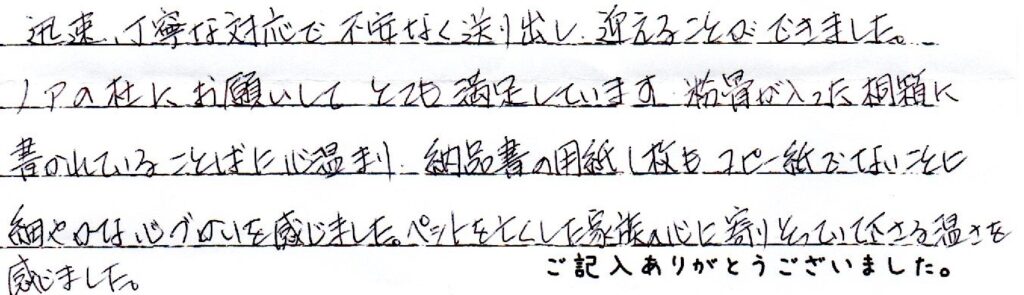 迅速、丁寧な対応で不安なく送り出し、迎えることができました。
ノアの杜に、お願いして とても満足しています。粉骨が入った桐箱に
書かれていることばに心温まり、納品書の用紙1枚もコピー紙でないことに
細やかな心づかいを感じました。ペットを亡くした家族の心に寄りそっていて下さる温さを
感じました。
ご記入ありがとうございました。